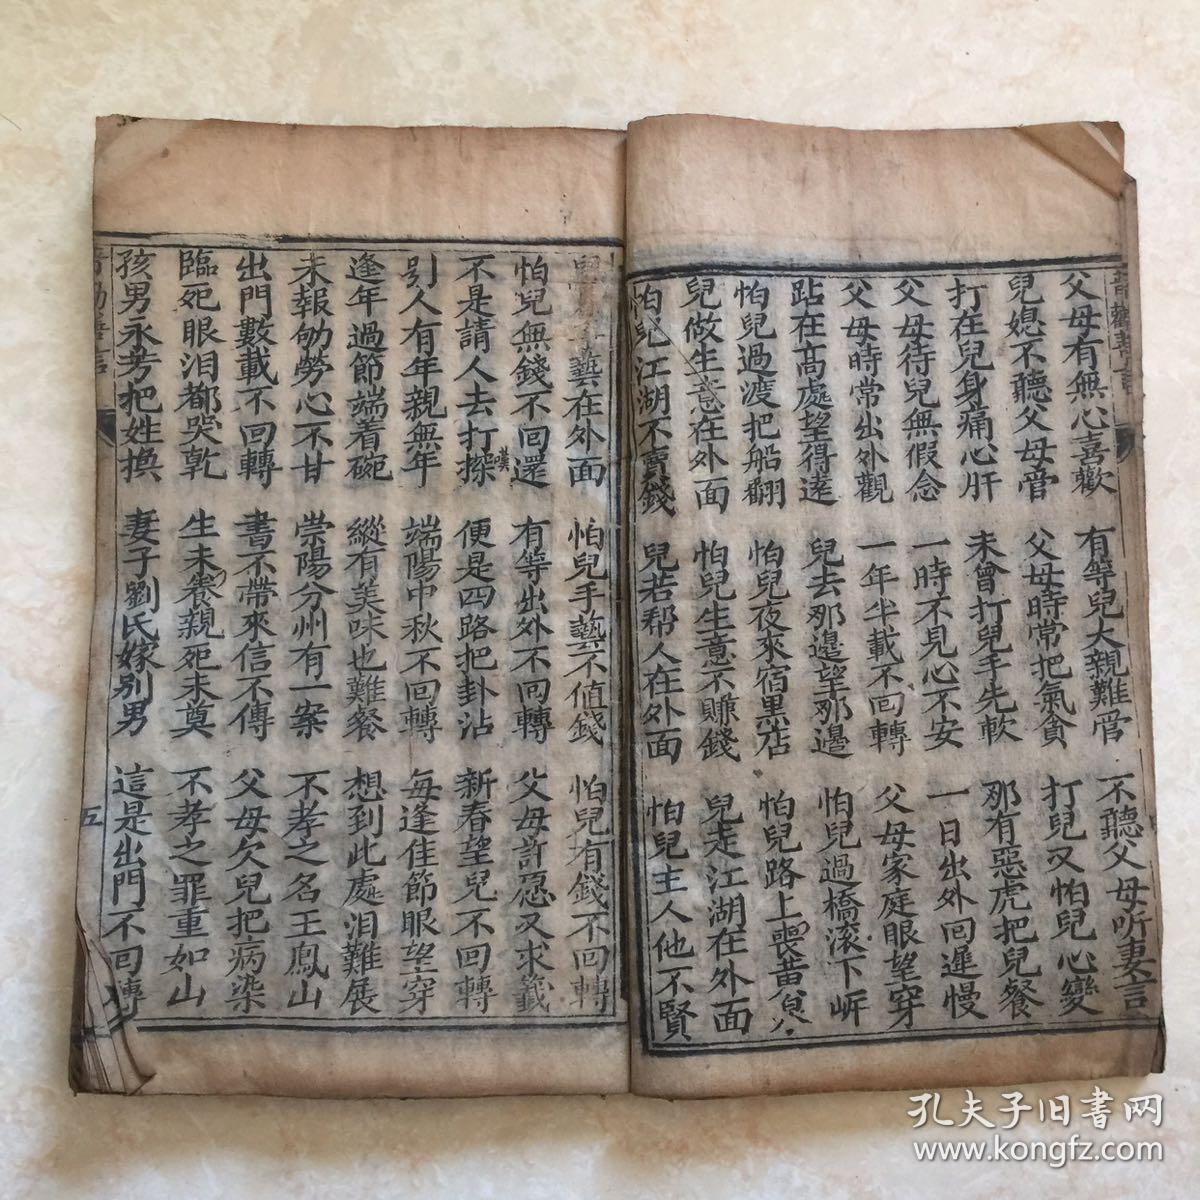 父母有無心喜歡 有等兒大親難管 不聽父母听妻言
兒媳不聽父母管 父母時常把氣貪 打兒又怕兒心變
打在兒身痛心肝 未曾打兒手先軟 那有惡虎把兒餐
父母待兒無假念 一時不見心不安 一日出外回遲慢
父母時常出外觀 一年半載不回轉 父母家庭眼望穿
跕在高處望得遠 兒去那邊望那邊 怕兒過橋滚下岍
怕兒過渡把船翻 怕兒夜來宿黑店 怕兒路上喪黄
兒做生意在外面 怕兒生意不賺錢 兒走江湖在外面
怕兒江湖不賣錢 兒若帮人在外面 怕兒主人他不賢
藝在外面 怕兒手藝不值錢 怕兒有錢不回轉
怕兒無錢不回還 有等出外不回轉 父母許愿又求籤
不是請人去打探嘆 便是四路把卦沾 新春望兒不回轉
別人有年親無年 端陽中秋不回轉 每逢佳節眼望穿
逢年過節端着碗 縱有美味也難餐 想到此處泪難展
未報劬勞心不甘 崇陽分州有一案 不孝之名王鳳山
出門數載不回轉 書不帶來信不傳 父母欠兒把病染
臨死眼泪都哭乾 生未養親死未奠 不孝之罪重如山
孩男永芳把姓換 妻子劉氏嫁別男 這是出門不回轉
五
孔夫子旧書网
www.kongfz.com